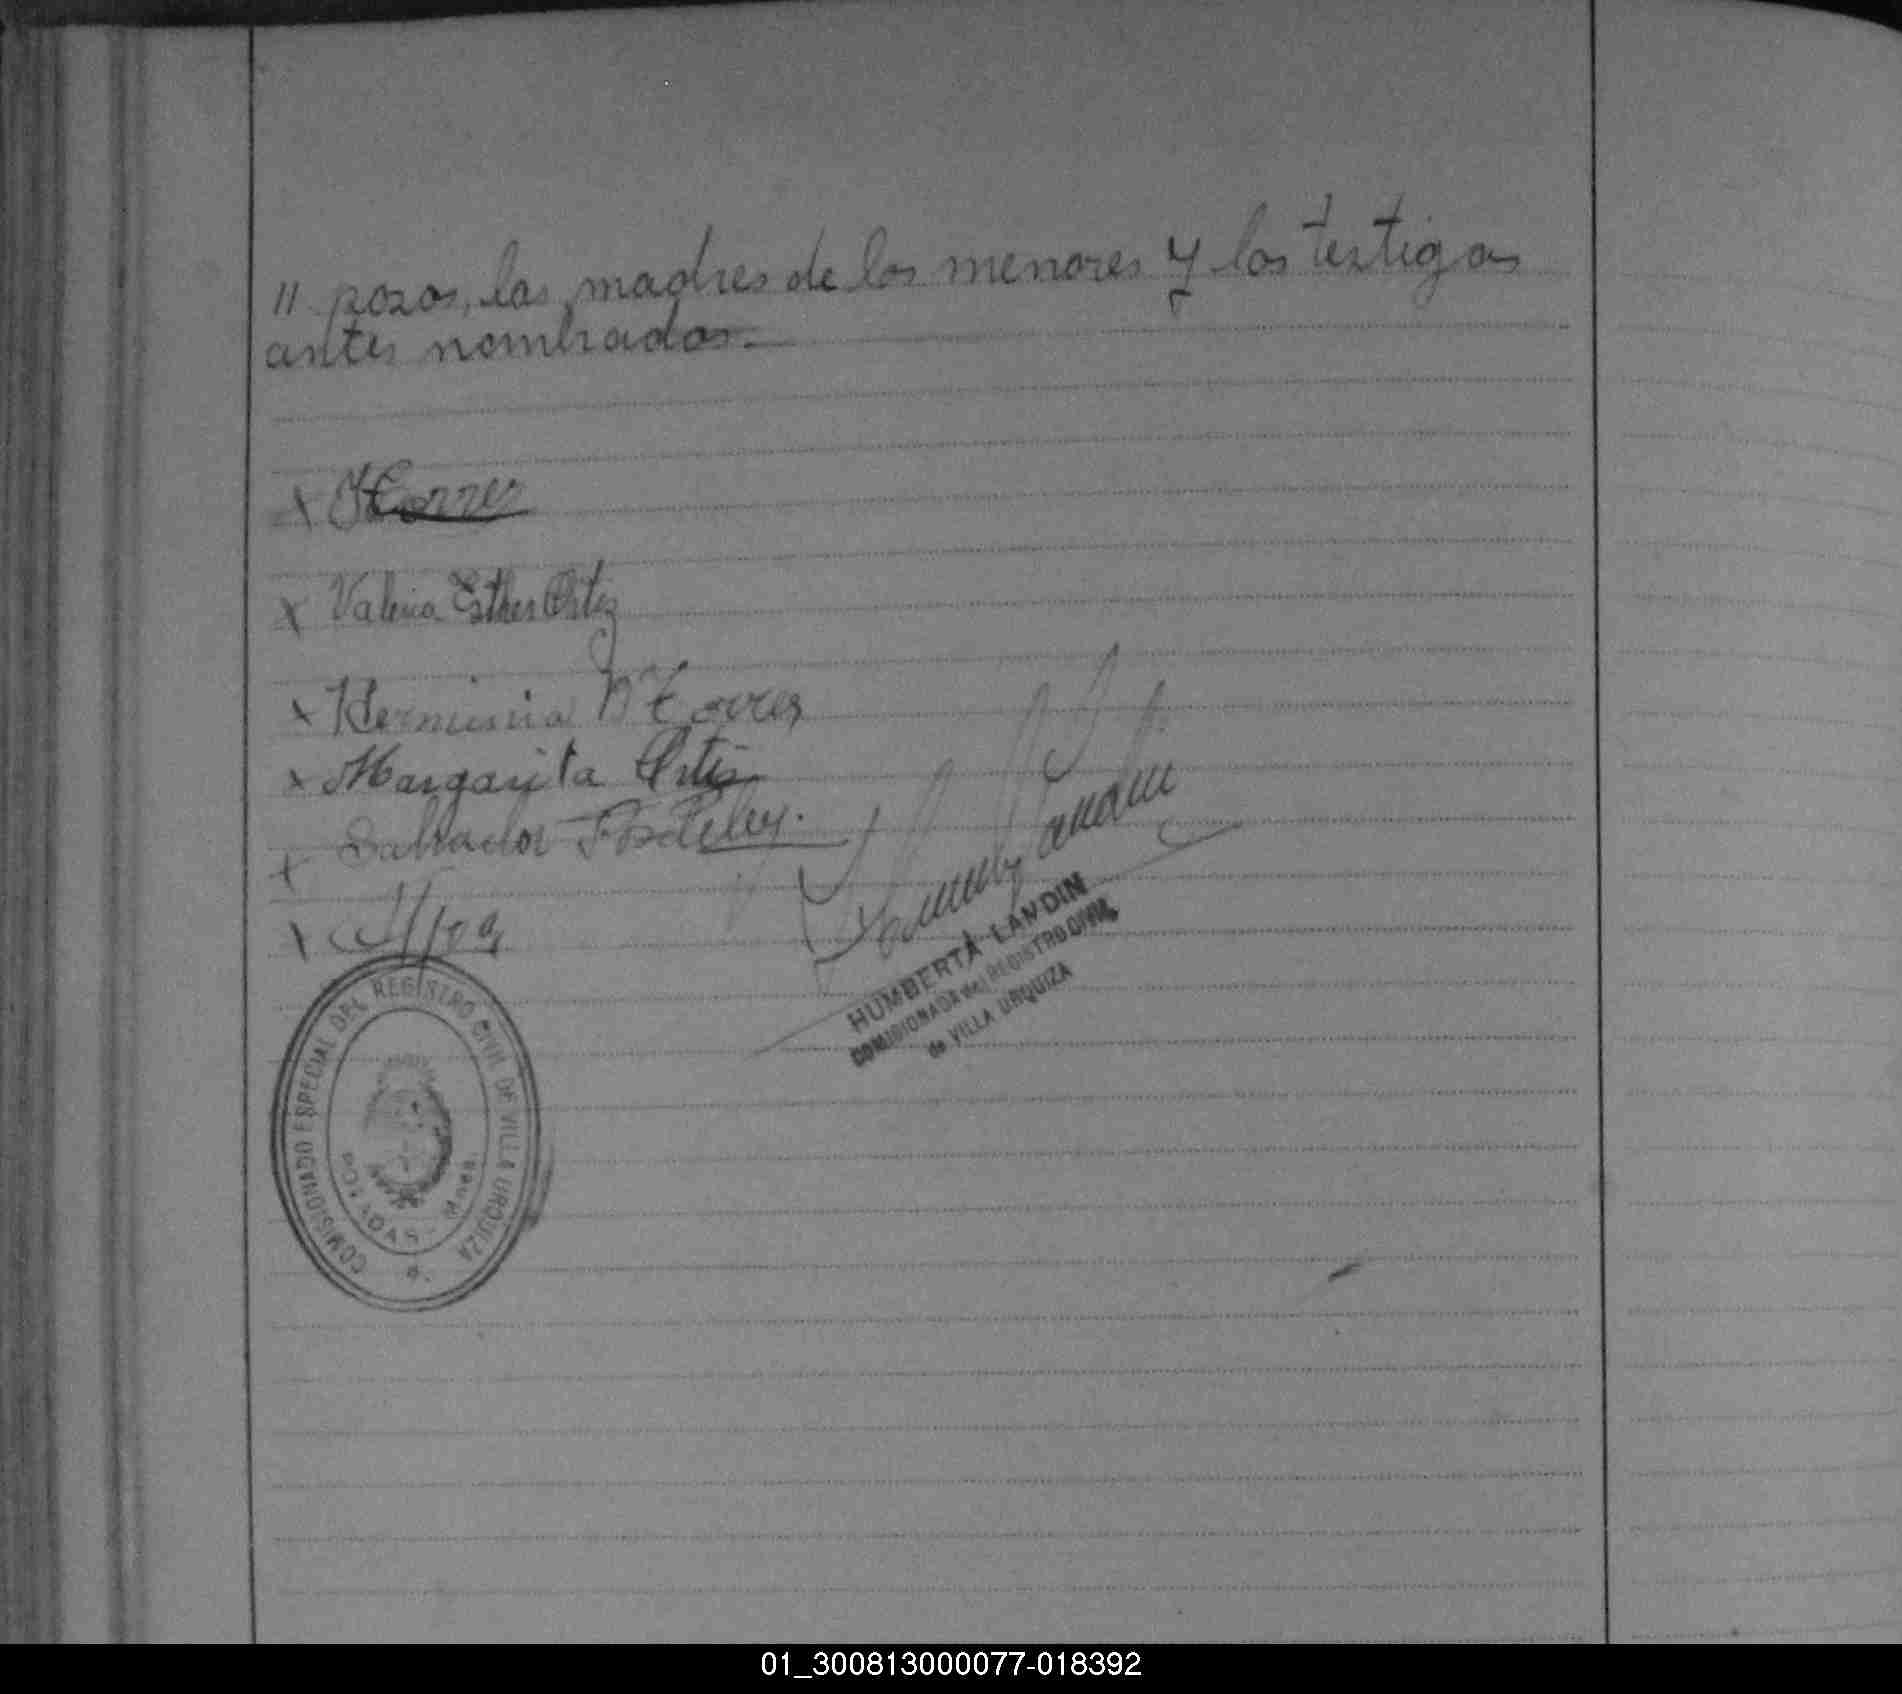 // pozos, las madres de los menores y los testigos
antes nombrados.-
x Torres
x Valeria Esther Ortiz
x Herminia D Torres
x Margarita Ortiz
x Salvador
x
HUMBERTA LANDIN
COMISIONADA del REGISTRO CIVIL
de VILLA URQUIZA
COMISIONADO ESPECIAL DEL REGISTRO CIVIL DE VILLA URQUIZA
POSADAS - Mnes.
01_300813000077-018392